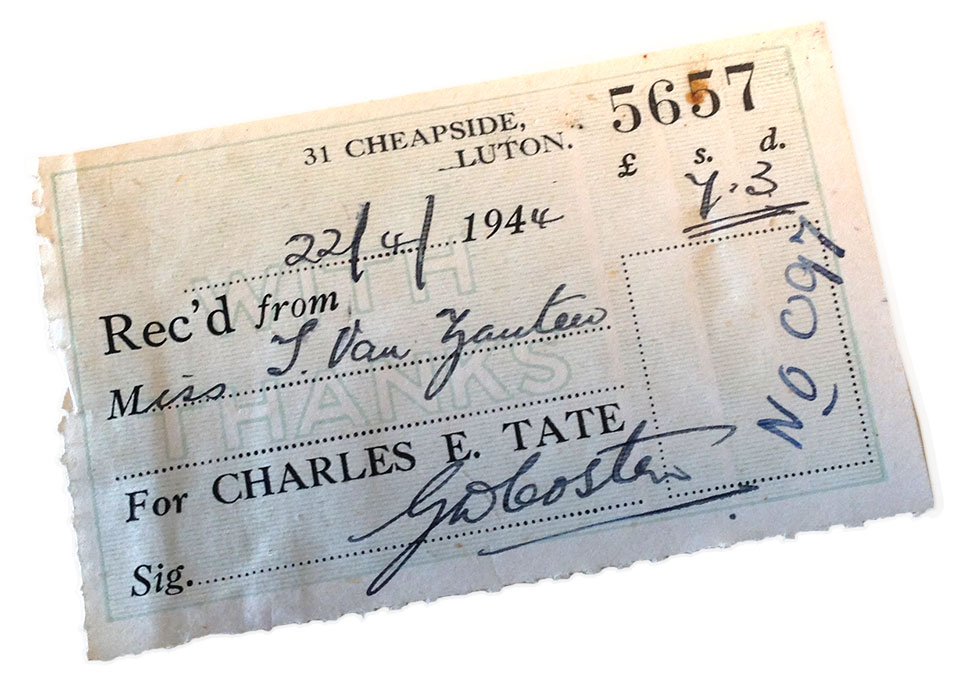 31 CHEAPSIDE,
LUTON.
5657
£ s. d.
7.3
22/4/1944
WITH
THANKS
Rec'd from
Miss Van Zanten
For CHARLES E. TATE
Sig.
No 097